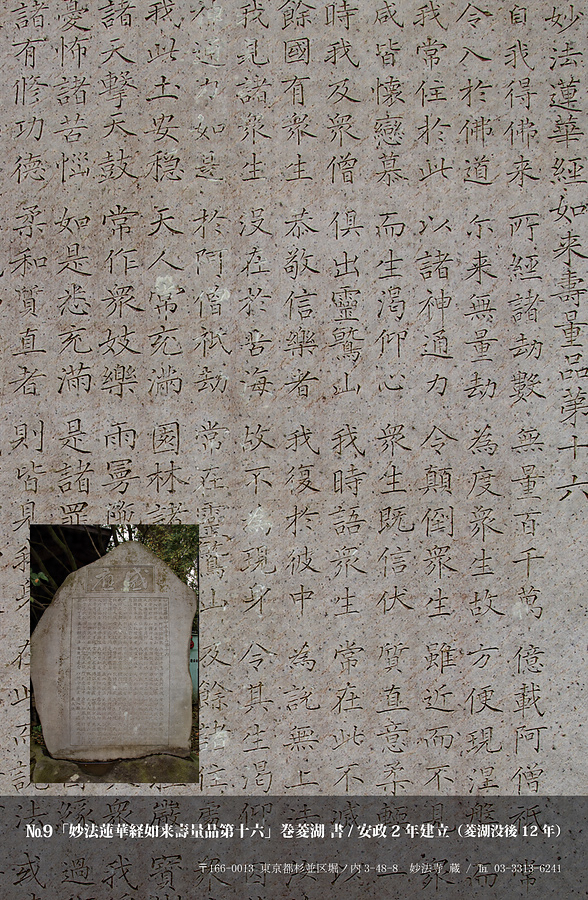 妙法蓮華經如来壽量品第十六
自我得佛来 所經諸劫數 無量百千萬 億載阿僧祇
令入於佛道 尓来無量劫 為度衆生故 方便現涅槃
我常住於此 以諸神通力 令顛倒衆生 雖近而不見
咸皆懷戀慕 而生渇仰心 衆生既信伏 質直意柔輭
時我及衆僧 俱出靈鷲山 我時語衆生 常在此不滅
餘國有衆生 恭敬信樂者 我復於彼中 為説無上法
我見諸衆生 没在於苦海 故不為現身 令其生渇仰
神通力如是 於阿僧祇劫 常在靈鷲山 及餘諸住處
我此土安穏 天人常充滿 園林諸 嚴 寳
諸天撃天鼓 常作衆妓樂 雨曼 衆 我
憂怖諸苦惱 如是悉充滿 是諸罪 縁 過
諸有修功德 柔和質直者 則皆見我身 在此而説法 或
№9「妙法蓮華経如来壽量品第十六」巻菱湖 書 / 安政 2 年建立（菱湖没後 12 年）
〒166-0013 東京都杉並区堀ノ内 3-48-8 妙法寺 蔵 / ℡ 03-3313-6241